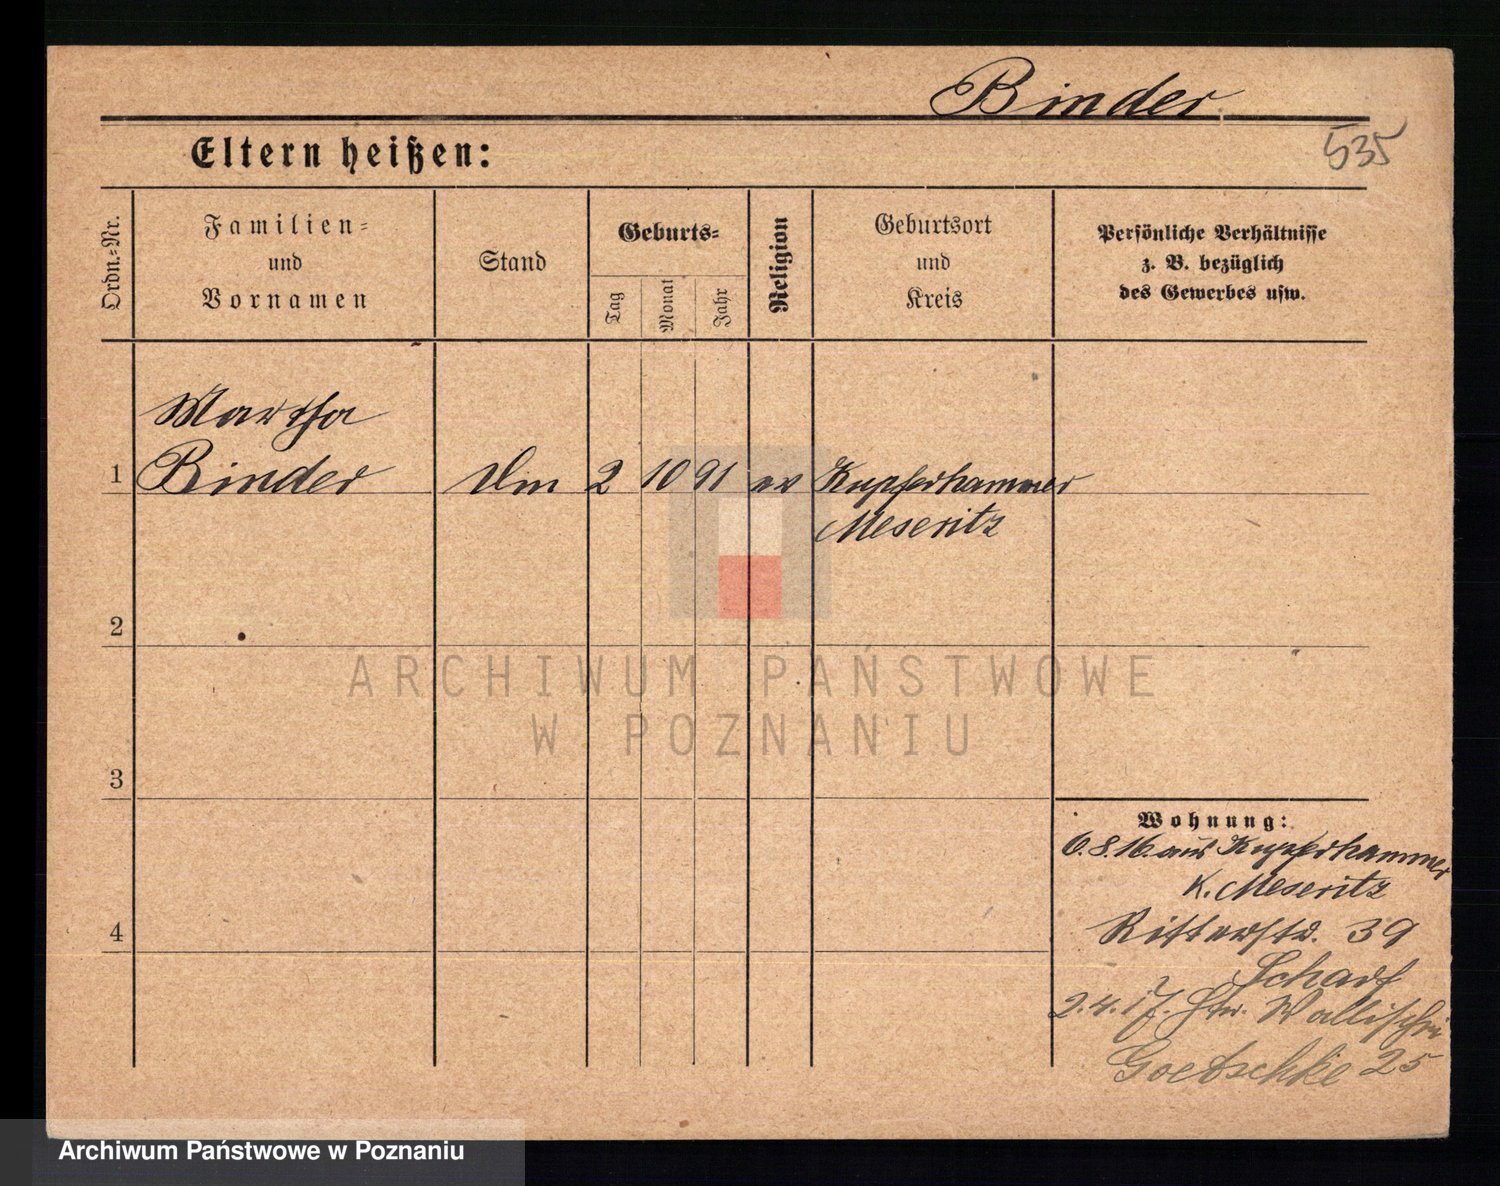 Binder
535
Eltern heißen:
Ordn.-Nr.
Familien=
und
Vornamen
Stand
Geburts=
Tag
Monat
Jahr
Religion
Geburtsort
und
Kreis
Persönliche Verhältnisse
z. B. bezüglich
des Gewerbes usw.
Martha
1 Binder 2 10 91 ev Kupferhammer
Meseritz
2
3
4
Wohnung:
6.8.16. aus Kupferhammer
K. Meseritz
Ritterstr. 39
Scharf
2.4.17. Wallischei
Goetschke 25
ARCHIWUM PAŃSTWOWE
W POZNANIU
Archiwum Państwowe w Poznaniu